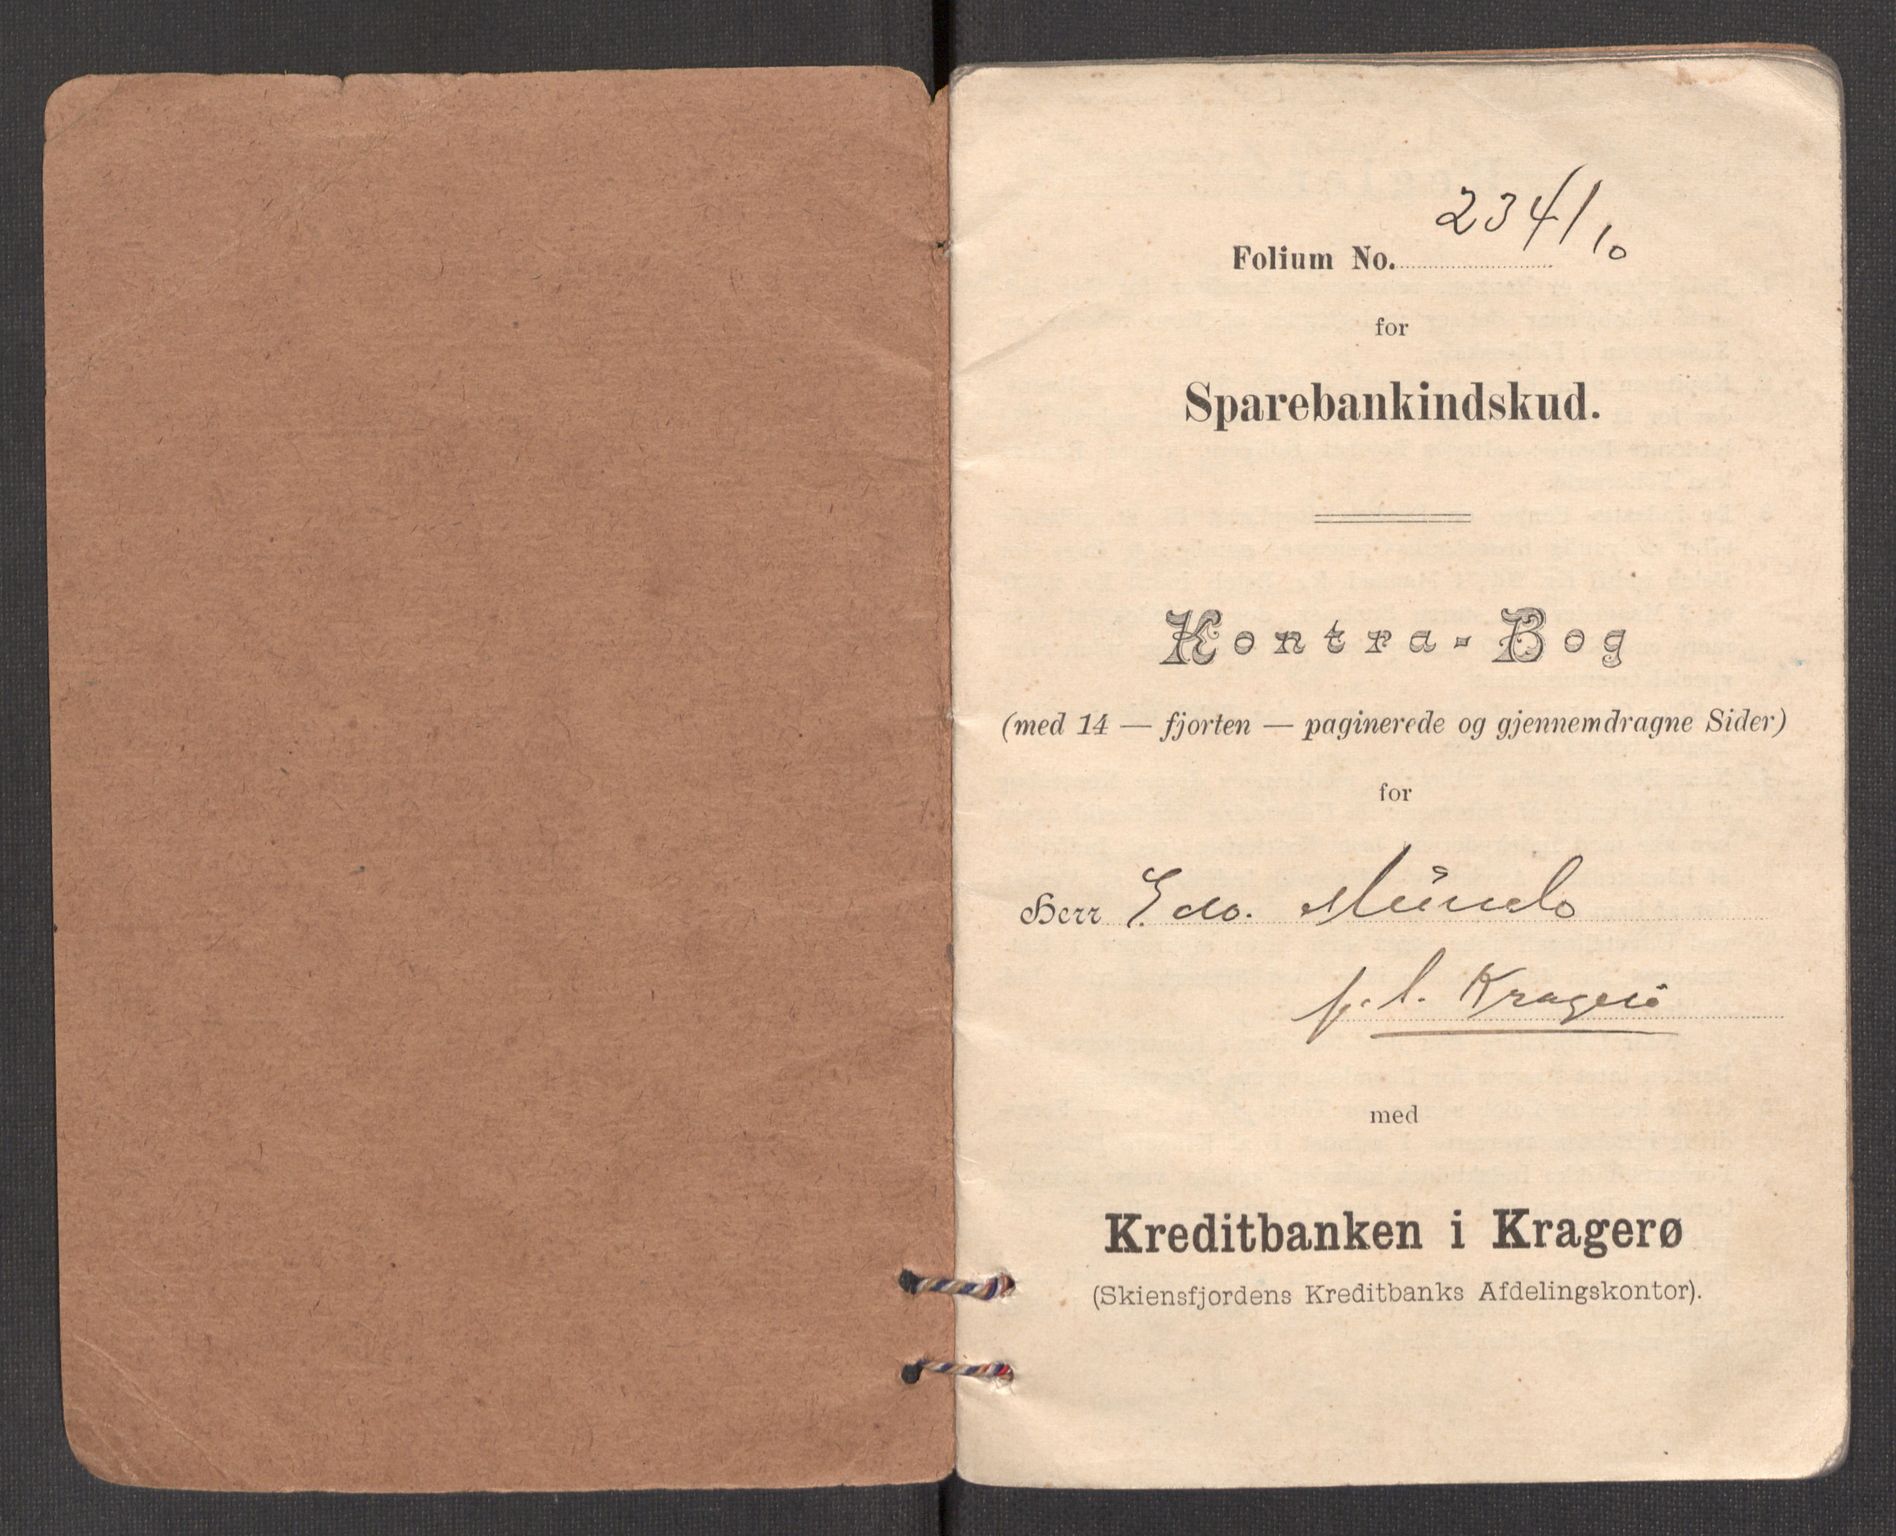 Folium No. 234/10
for
Sparebankindskud.
Kontra-Bog
(med 14 — fjorten — paginerede og gjennemdragne Sider)
for
Herr Edv. Munch
p. t. Kragerø
med
Kreditbanken i Kragerø
(Skiensfjordens Kreditbanks Afdelingskontor).